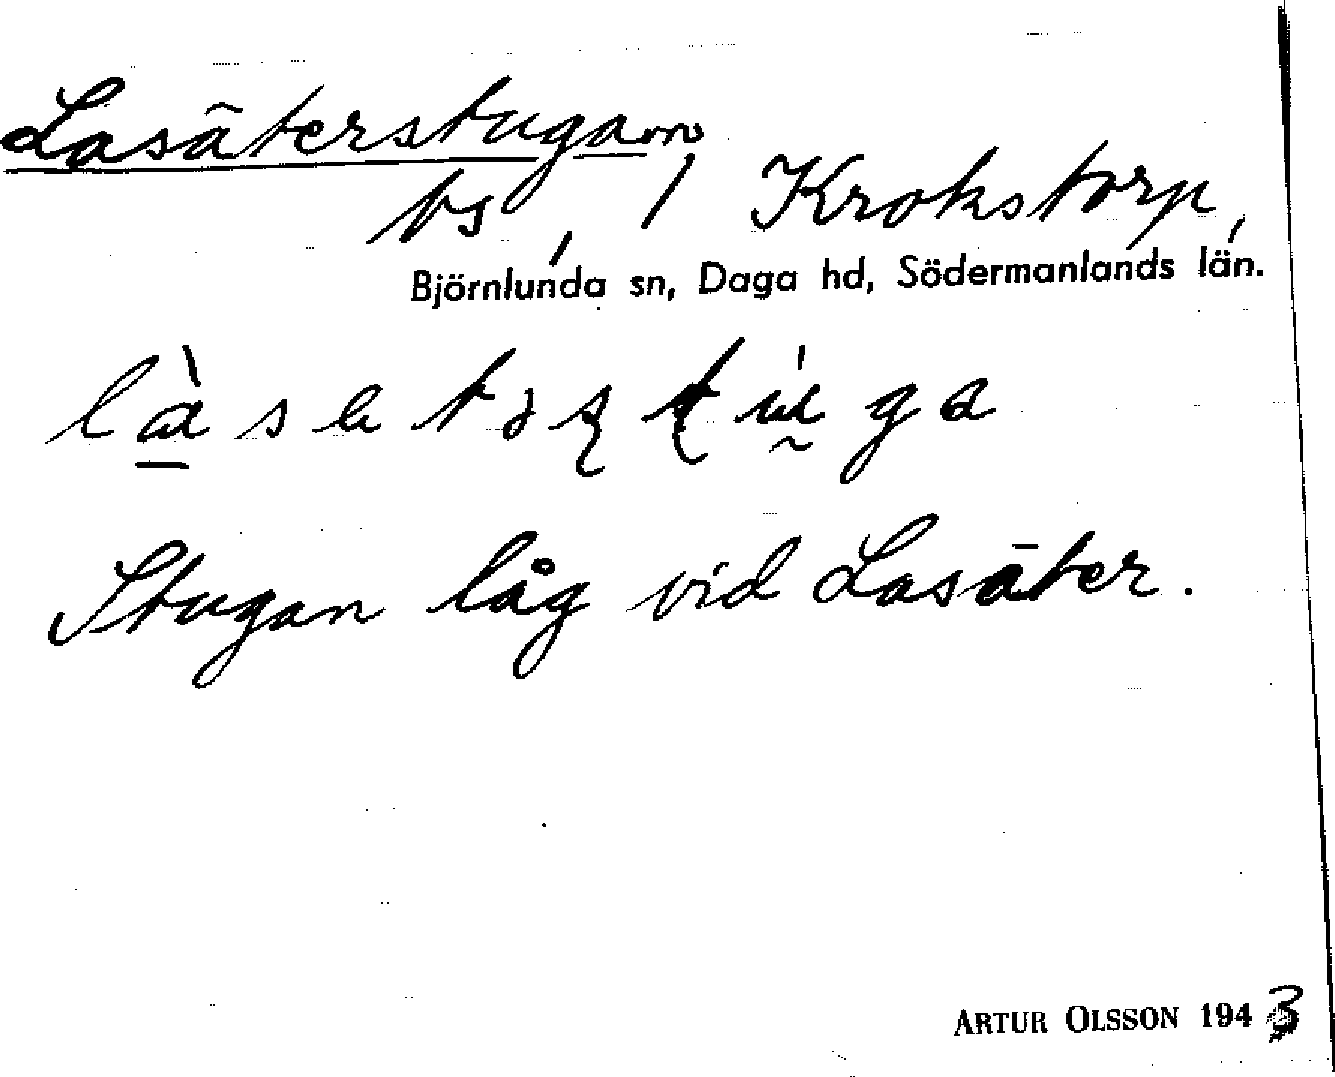 Lasäterstugan
ts, / Krokstorp,
Björnlunda sn, Daga hd, Södermanlands län.
Stugan låg vid Lasäter.
ARTUR OLSSON 1943